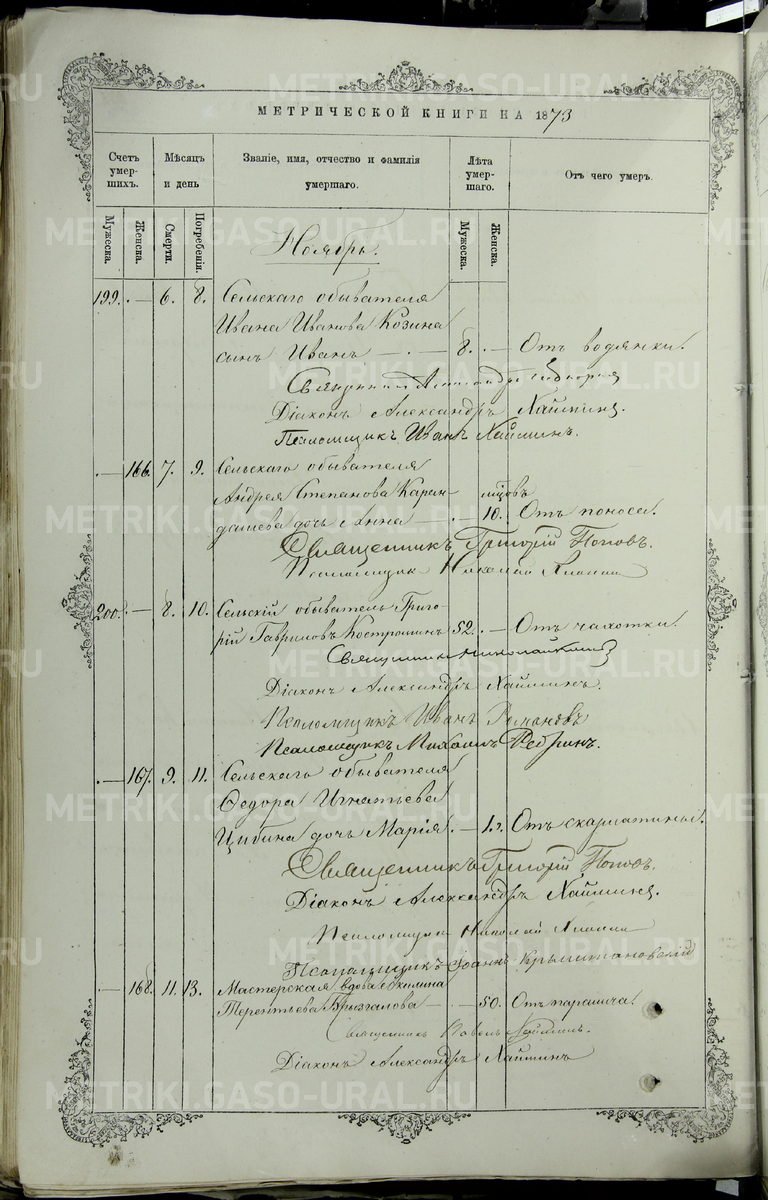 МЕТРИЧЕСКОЙ КНИГИ НА 1873
Счетъ умершихъ.
Мѣсяцъ и день
Званіе, имя, отчество и фамилія умершаго.
Лѣта умершаго.
Отъ чего умеръ.
Мужеска.
Женска.
Смерти.
Погребенія.
Мужеска.
Женска.
Ноябрь.
199. — 6. 8. Сельскаго обывателя
Ивана Иванова Козина
сынъ Иванъ — 8. — Отъ водянки.
Священникъ Александръ
Діаконъ Александръ Хайминъ.
Псаломщикъ Иванъ Хайминъ.
— 166. 7. 9. Сельскаго обывателя
Андрея Степанова Каран-
дашева дочь Анна — 10. мцовъ Отъ поноса.
Священникъ Григорій Поповъ.
Псаломщик Николай
200. — 8. 10. Сельскій обыватель Григо-
рій Гавриловъ Костроминъ 52. — Отъ чахотки.
Священникъ
Діаконъ Александръ Хайминъ.
Псаломщикъ Иванъ Романовъ
Псаломщикъ Михаилъ
— 167. 9. 11. Сельскаго обывателя
Ѳедора Игнатьева
Цибина дочь Марія. — 1. г. Отъ скарлатины.
Священникъ Григорій Поповъ.
Діаконъ Александръ Хайминъ.
Псаломщик Николай
Псаломщикъ Іоаннъ Крыжановскій
— 168. 11. 13. Мастерская вдова Акилина
Терентьева Брызгалова — 50. Отъ паралича.
Священникъ Павелъ Хайминъ.
Діаконъ Александръ Хайминъ
METRIKI.GASO-URAL.RU